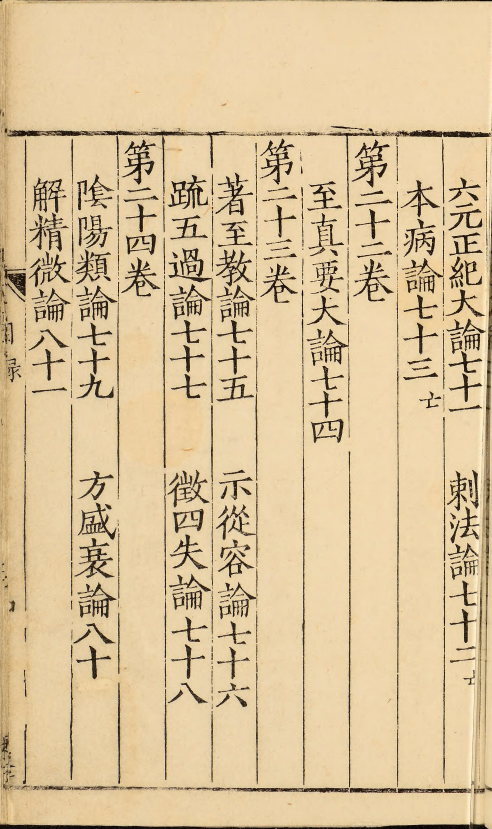 六元正紀大論七十一　刺法論七十二亡
本病論七十三亡
第二十二卷
至真要大論七十四
第二十三卷
著至教論七十五　示從容論七十六
疏五過論七十七　徵四失論七十八
第二十四卷
陰陽類論七十九　方盛衰論八十
解精微論八十一
目録